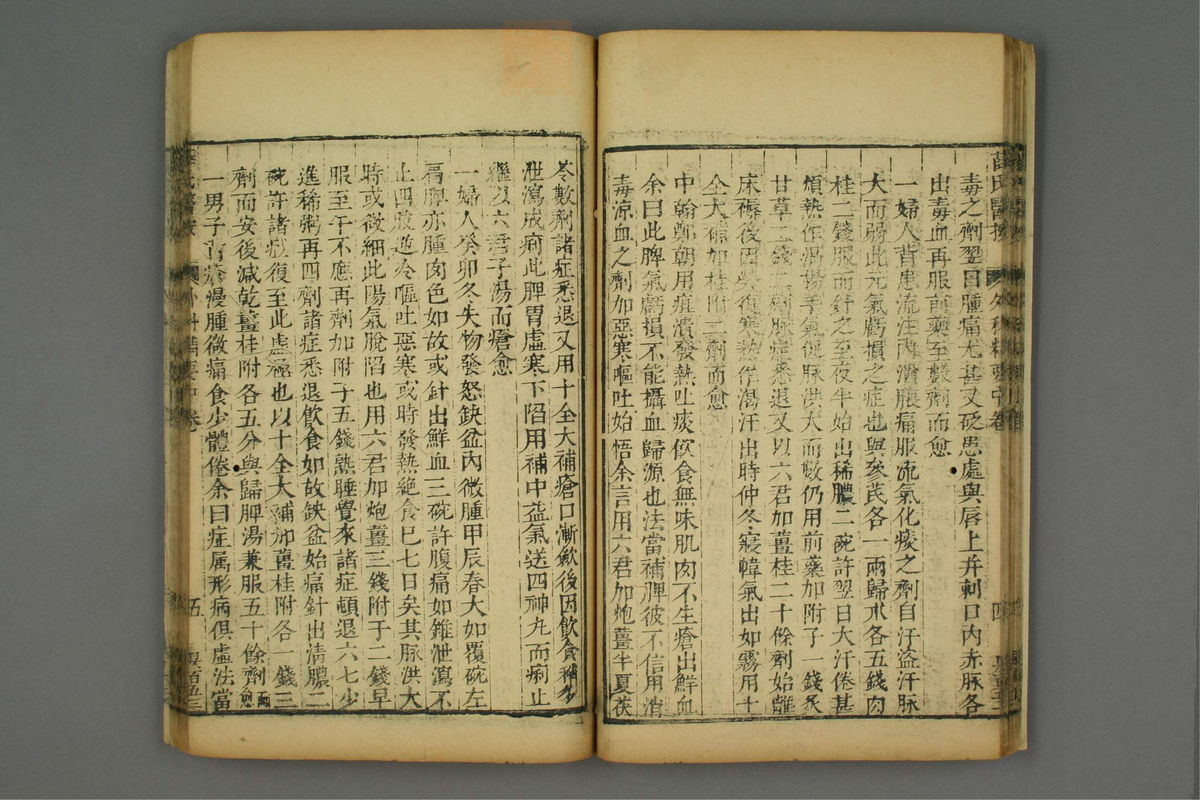 毒之劑翌日腫痛尤甚又砭患處與唇上并刺口內赤脉各
出毒血再服前藥至數劑而愈
一婦人背患流注內潰脹痛服流氣化痰之劑自汗盜汗脉
大而弱此元氣虧損之症也與參芪各一兩歸朮各五錢肉
桂二錢服而針之至夜半始出稀膿二碗許翌日大汗倦甚
煩熱作渴揚手氣促脉洪大而數仍用前藥加附子一錢炙
甘草二錢二劑脉症悉退又以六君加薑桂二十餘劑始離
床褥後因勞復寒熱作渴汗出時仲冬寢幃氣出如霧用十
全大補加桂附三劑而愈
中翰鄭朝用疽潰發熱吐痰飲食無味肌肉不生瘡出鮮血
余曰此脾氣虧損不能攝血歸源也法當補脾彼不信用消
毒涼血之劑加惡寒嘔吐始悟余言用六君加炮薑半夏茯
苓數劑諸症悉退又用十全大補瘡口漸斂後因飲食稍多
泄瀉成痢此脾胃虛寒下陷用補中益氣送四神丸而痢止
繼以六君子湯而瘡愈
一婦人癸卯冬失物發怒缺盆內微腫甲辰春大如覆碗左
肩脾亦腫肉色如故或針出鮮血三碗許腹痛如錐泄瀉不
止四肢逆冷嘔吐惡寒或時發熱絕食已七日矣其脉洪大
時或微細此陽氣脫陷也用六君加炮薑三錢附子二錢早
服至午不應再劑加附子五錢熟睡覺來諸症頓退六七少
進稀粥再四劑諸症悉退飲食如故缺盆始痛針出清膿二
碗許諸症復至此虛極也以十全大補加薑桂附各一錢三
劑而安後減乾薑桂附各五分與歸脾湯兼服五十餘劑而愈
一男子百會漫腫微痛食少體倦余曰症属形病俱虛法當
薛氏醫按
外科精要中卷
四
五